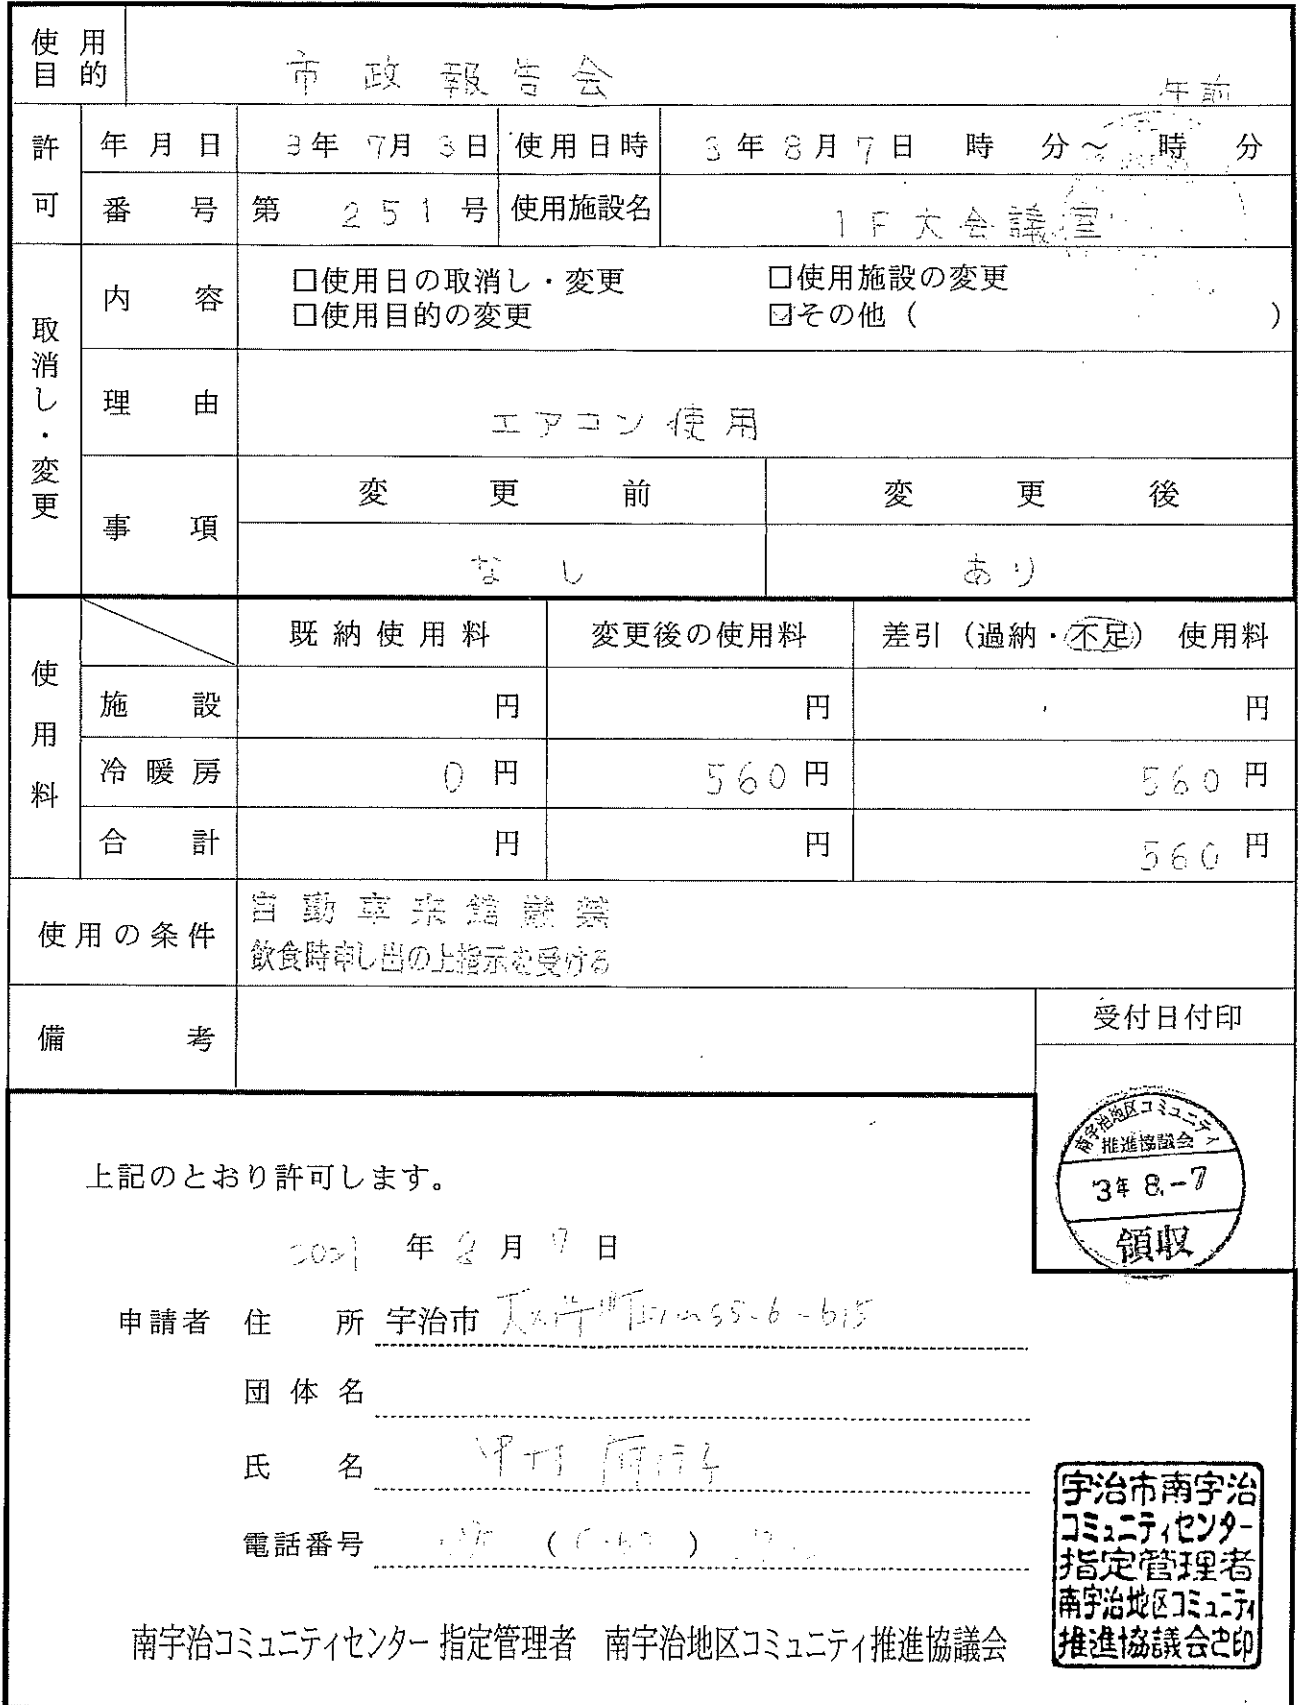 使用目的 市政報告会
午前
許可 年月日 3年7月3日 使用日時 3年8月7日 時 分～ 時 分
番号 第 251 号 使用施設名 1F大会議室
取消し・変更 内容 □使用日の取消し・変更 □使用施設の変更
□使用目的の変更 ☑その他 ( )
理由 エアコン使用
事項 変更前 変更後
なし あり
使用料 既納使用料 変更後の使用料 差引（過納・不足）使用料
施設 円 円 円
冷暖房 0円 560円 560円
合計 円 円 560円
使用の条件 自動車来館厳禁
飲食時申し出の上指示を受ける
備考
受付日付印
南宇治地区コミュニティ
推進協議会
3年8.-7
領収
上記のとおり許可します。
2021年8月7日
申請者 住所 宇治市
団体名
氏名
電話番号 ( )
南宇治コミュニティセンター 指定管理者 南宇治地区コミュニティ推進協議会
宇治市南宇治
コミュニティセンター
指定管理者
南宇治地区コミュニティ
推進協議会之印